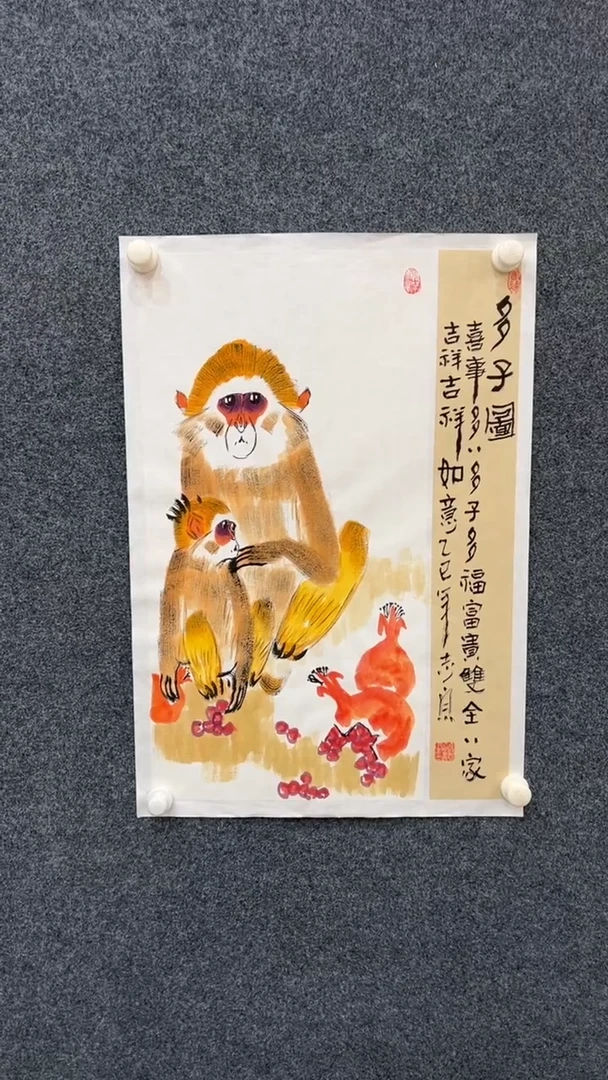 多子圖
喜事多〻多子多福富貴雙全〻家
吉祥吉祥如意乙巳年志良